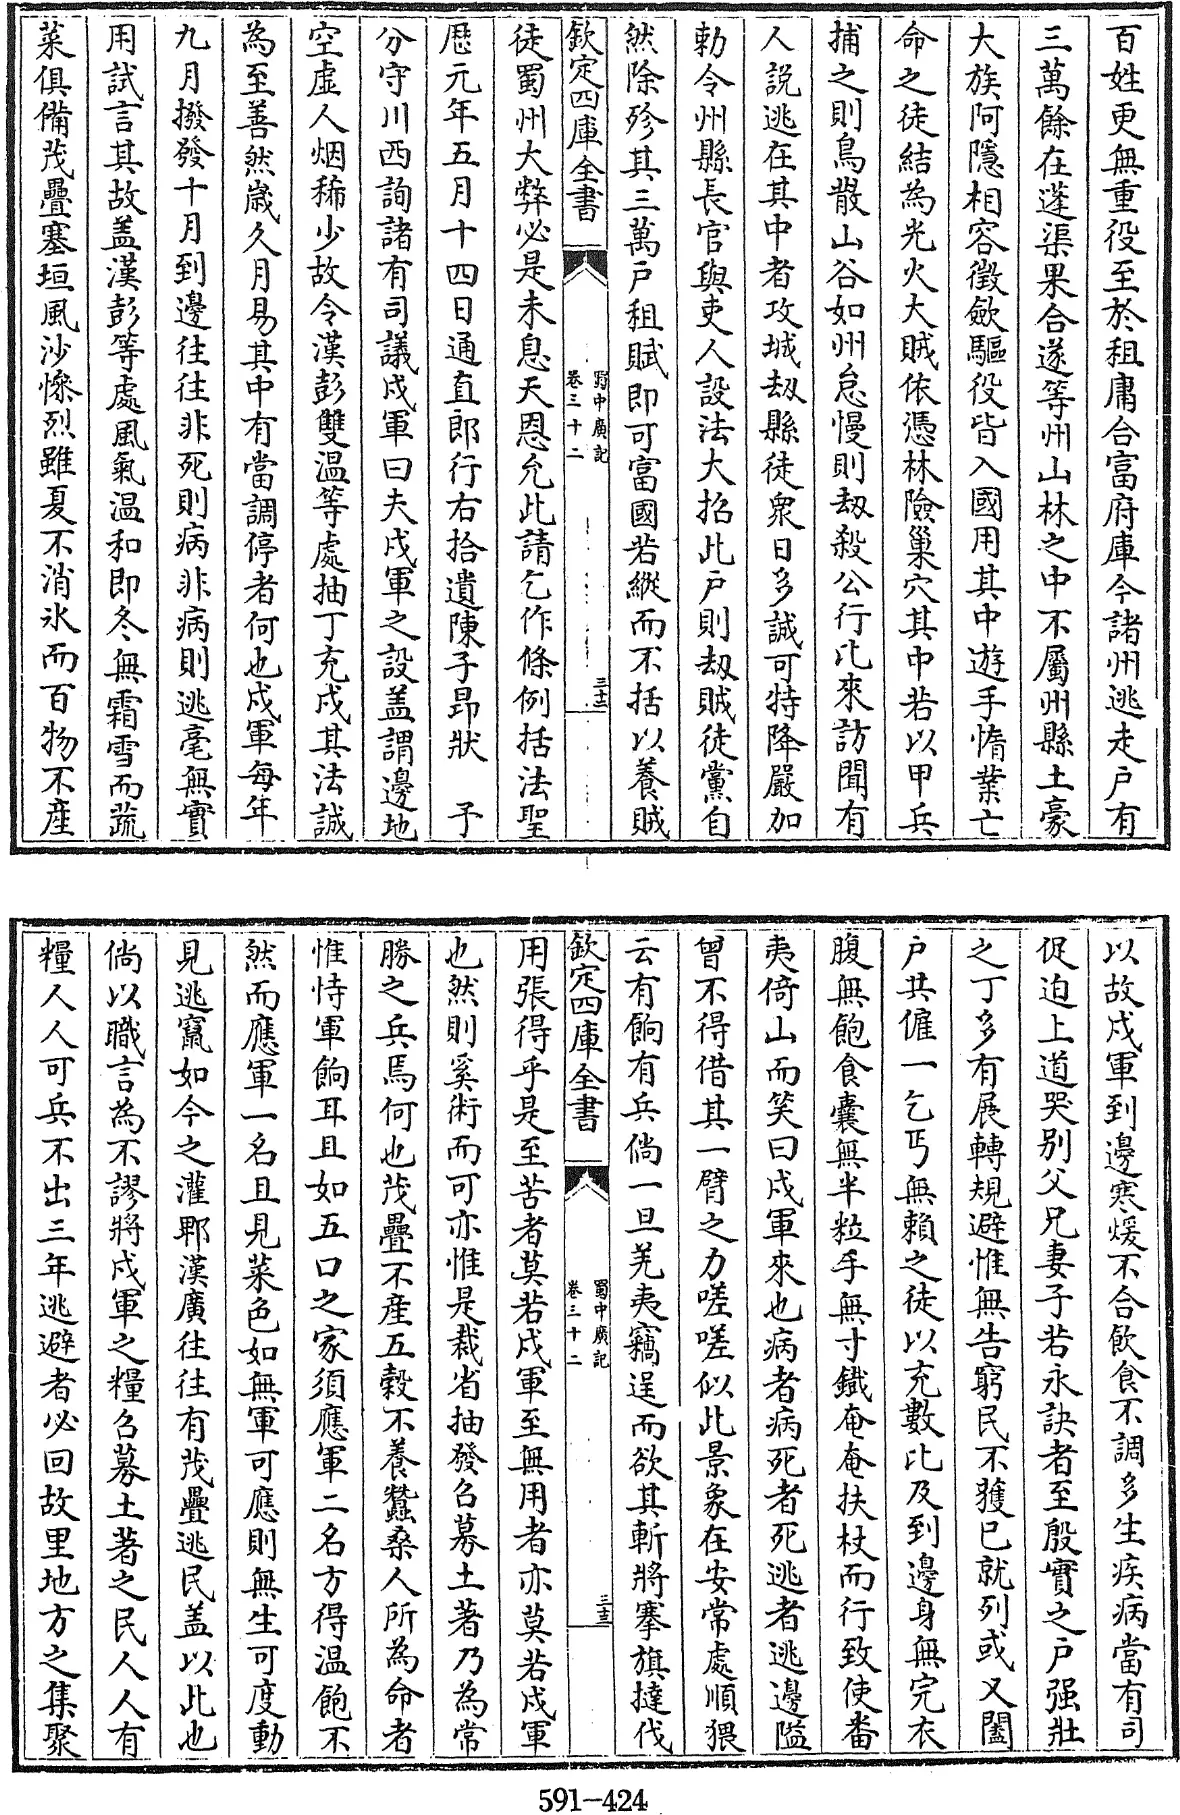 百姓更無重役至於租庸合富府庫今諸州逃走户有
三萬餘在蓬渠果合遂等州山林之中不屬州縣土豪
大族阿隱相容徵斂驅役皆入國用其中遊手惰業亡
命之徒結為光火大賊依憑林險巢穴其中若以甲兵
捕之則鳥散山谷如州怠慢則刼殺公行比來訪聞有
人説逃在其中者攻城刼縣徒衆日多誠可特降嚴加
勅令州縣長官與吏人設法大招此户則刼賊徒黨自
然除殄其三萬户租賦即可富國若縱而不括以養賊
欽定四庫全書
蜀中廣記
卷三十二
三十二
徒蜀州大弊必是未息天恩允此請乞作條例括法聖
歴元年五月十四日通直郎行右拾遺陳子昂狀　予
分守川西詢諸有司議戍軍曰夫戍軍之設盖謂邊地
空虚人烟稀少故令漢彭雙温等處抽丁充戍其法誠
為至善然嵗久月易其中有當調停者何也戍軍每年
九月撥發十月到邊往往非死則病非病則逃毫無實
用試言其故盖漢彭等處風氣温和即冬無霜雪而蔬
菜俱備茂疊塞垣風沙慘烈雖夏不消氷而百物不產
以故戍軍到邊寒煖不合飲食不調多生疾病當有司
促迫上道哭别父兄妻子若永訣者至殷實之户强壯
之丁多有展轉規避惟無告窮民不獲已就列或又闔
户共僱一乞丐無賴之徒以充數比及到邊身無完衣
腹無飽食囊無半粒手無寸鐵奄奄扶杖而行致使番
夷倚山而笑曰戍軍來也病者病死者死逃者逃邊隘
曾不得借其一臂之力嗟嗟似此景象在安常處順猥
云有餉有兵倘一旦羌夷竊逞而欲其斬將搴旗撻伐
欽定四庫全書
蜀中廣記
卷三十二
三十三
用張得乎是至苦者莫若戍軍至無用者亦莫若戍軍
也然則奚術而可亦惟是裁省抽發召募土著乃為常
勝之兵焉何也茂疊不產五穀不養蠶桑人所為命者
惟恃軍餉耳且如五口之家須應軍二名方得温飽不
然而應軍一名且見菜色如無軍可應則無生可度動
見逃竄如今之灌郫漢廣往往有茂疊逃民盖以此也
倘以職言為不謬將戍軍之糧召募土著之民人人有
糧人人可兵不出三年逃避者必回故里地方之集聚
591-424